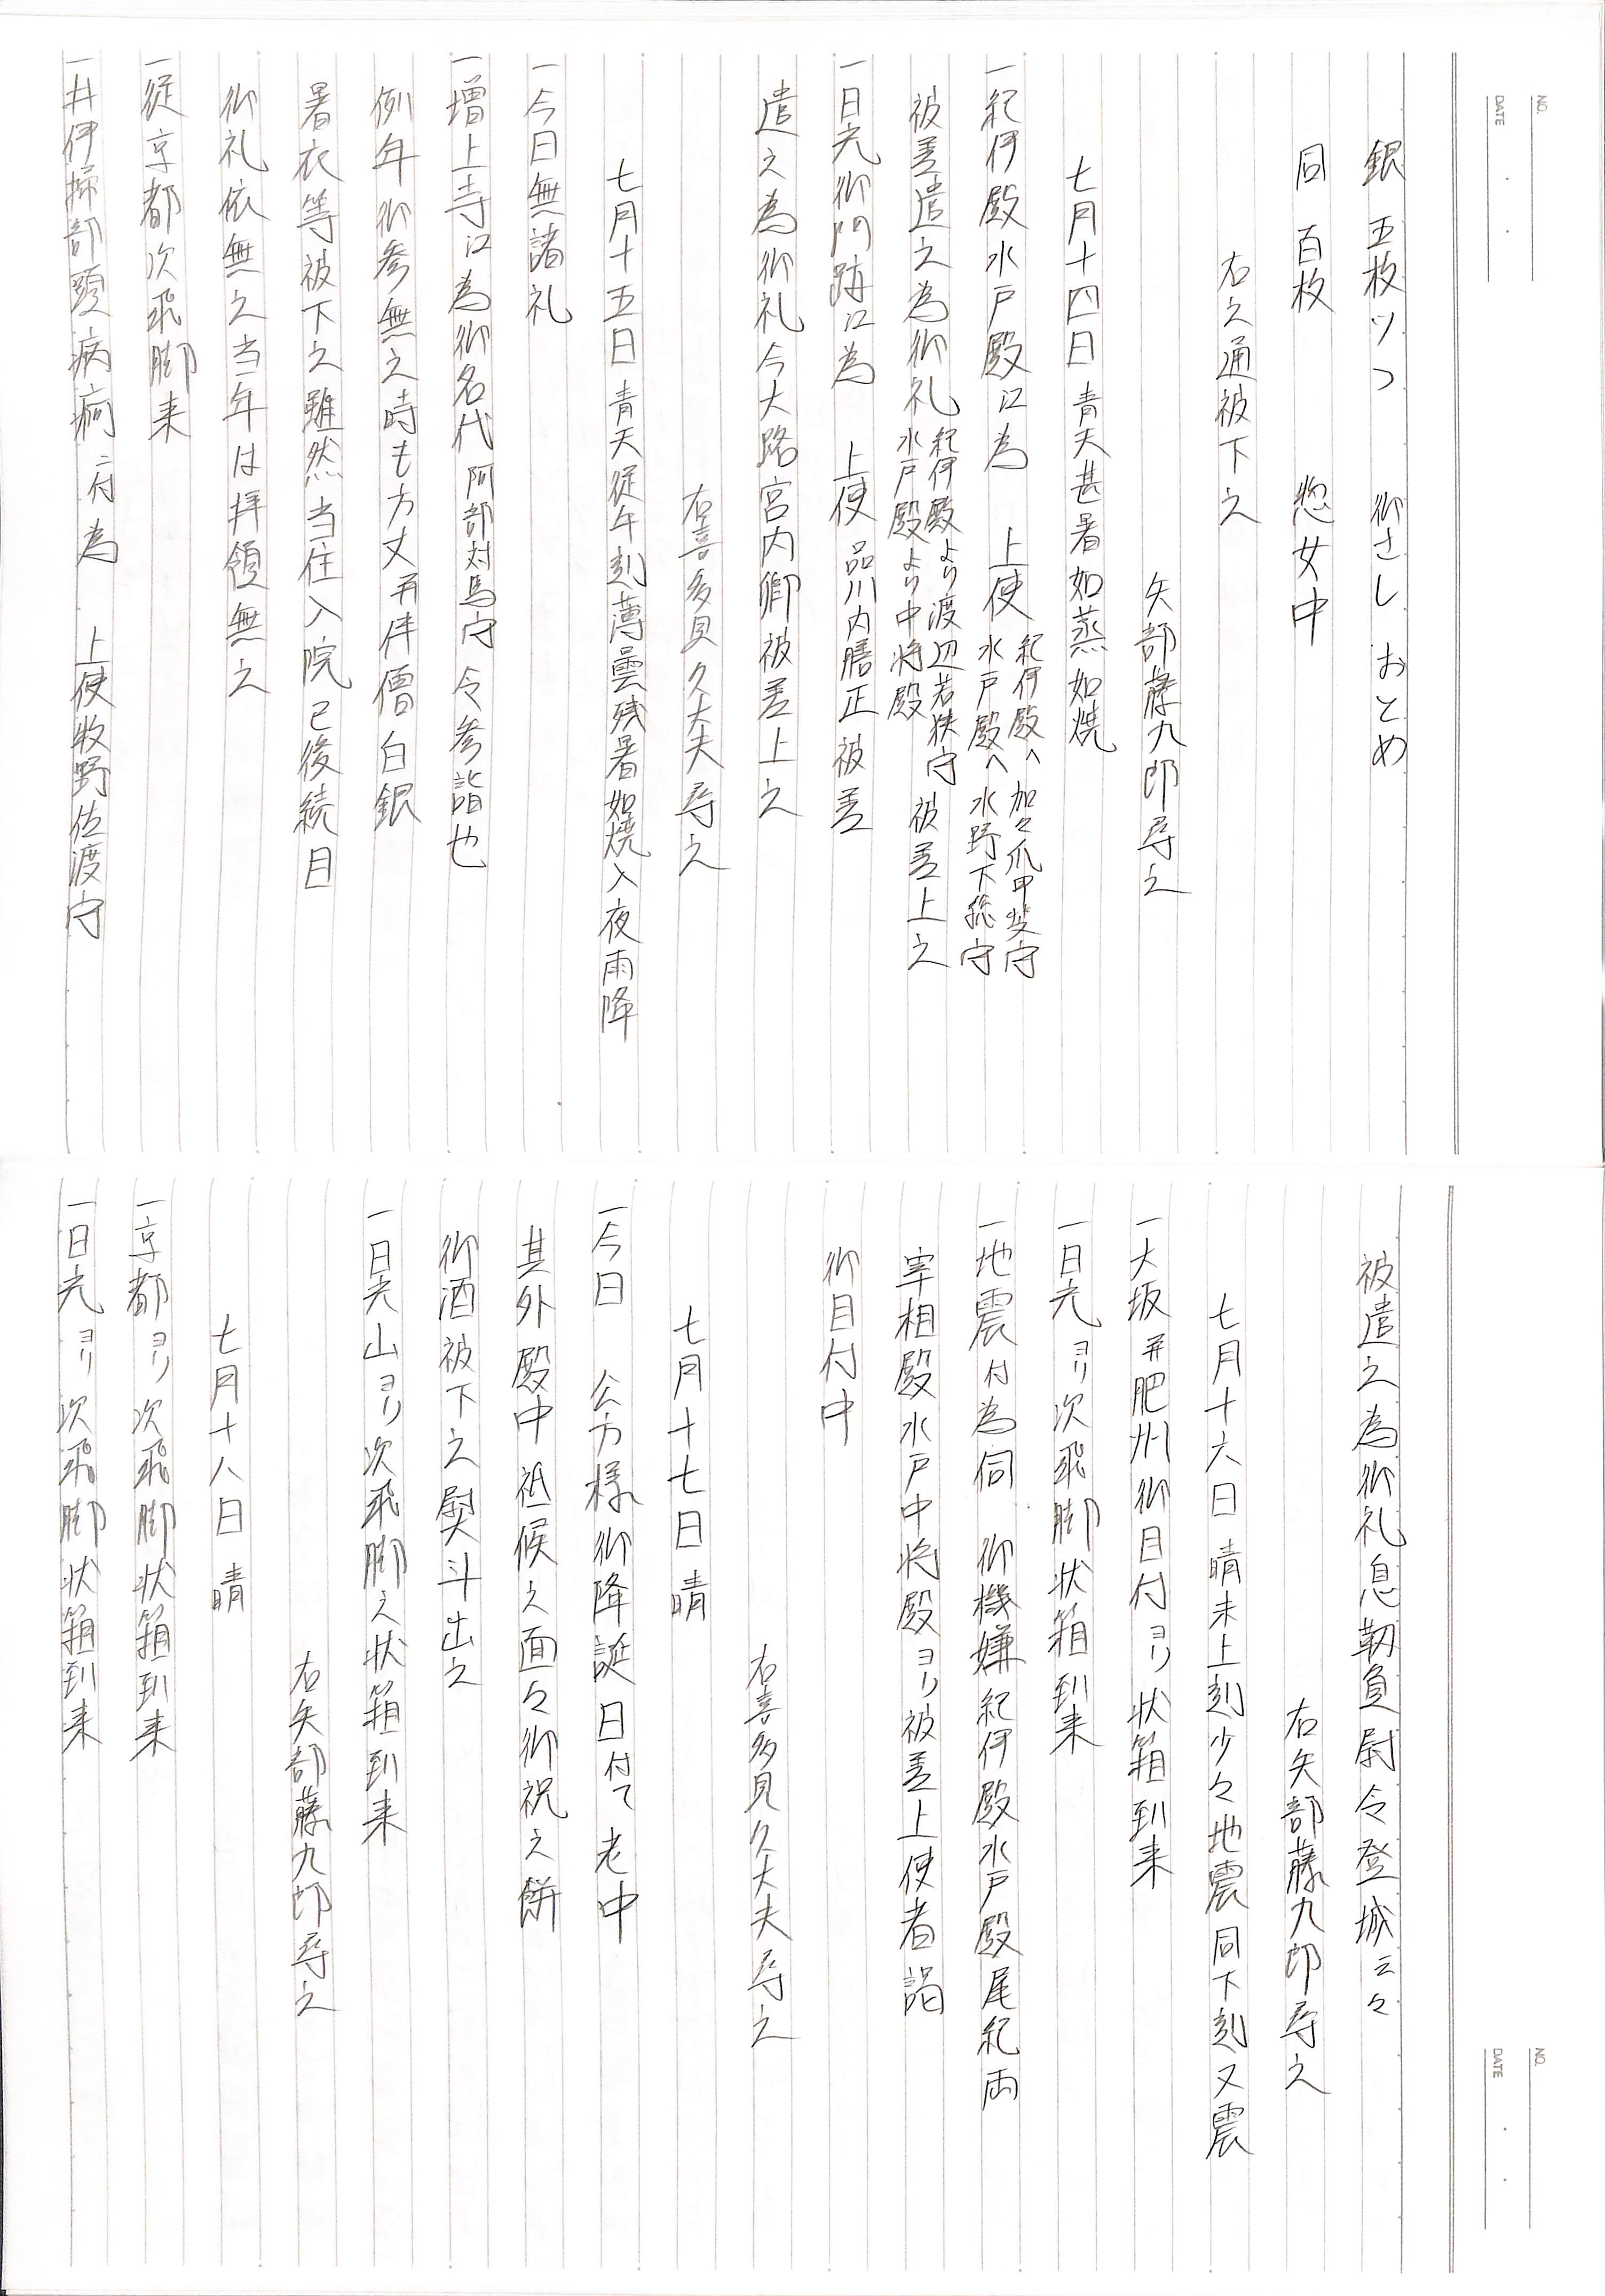 NO.
DATE
銀 五枚ツヽ 御さし おとめ
同 百枚 惣女中
右之通被下之
矢部藤九郎尋之
七月十四日 青天甚暑如蒸如焼
一紀伊殿水戸殿江為 上使 紀伊殿へ 加々爪甲斐守
水戸殿へ 水野下総守
被差遣之為御礼 紀伊殿より渡辺若狭守
水戸殿より中将殿 被差上之
一日光御門跡江為 上使 品川内膳正被差
遣之為御礼今大路宮内卿被差上之
右喜多見久太夫尋之
七月十五日 青天従午刻薄曇残暑如焼入夜雨降
一今日無諸礼
一増上寺江為御名代 阿部対馬守令参詣也
例年御参無之時も方丈并伴僧白銀
暑衣等被下之雖然当住入院已後続目
御礼依無之当年は拝領無之
一従京都次飛脚来
一井伊掃部頭病痾ニ付為 上使牧野佐渡守
NO.
DATE
被遣之為御礼息靱負尉令登城云々
右矢部藤九郎尋之
七月十六日 晴未上刻少々地震同下刻又震
一大坂并肥州御目付ヨリ状箱到来
一日光ヨリ次飛脚状箱到来
一地震付為伺 御機嫌紀伊殿水戸殿尾紀両
宰相殿水戸中将殿ヨリ被差上使者謁
御目付中
右喜多見久太夫尋之
七月十七日 晴
一今日 公方様御降誕日付て老中
其外殿中祗候之面々御祝之餅
御酒被下之熨斗出之
一日光山ヨリ次飛脚之状箱到来
右矢部藤九郎尋之
七月十八日 晴
一京都ヨリ次飛脚状箱到来
一日光ヨリ次飛脚状箱到来